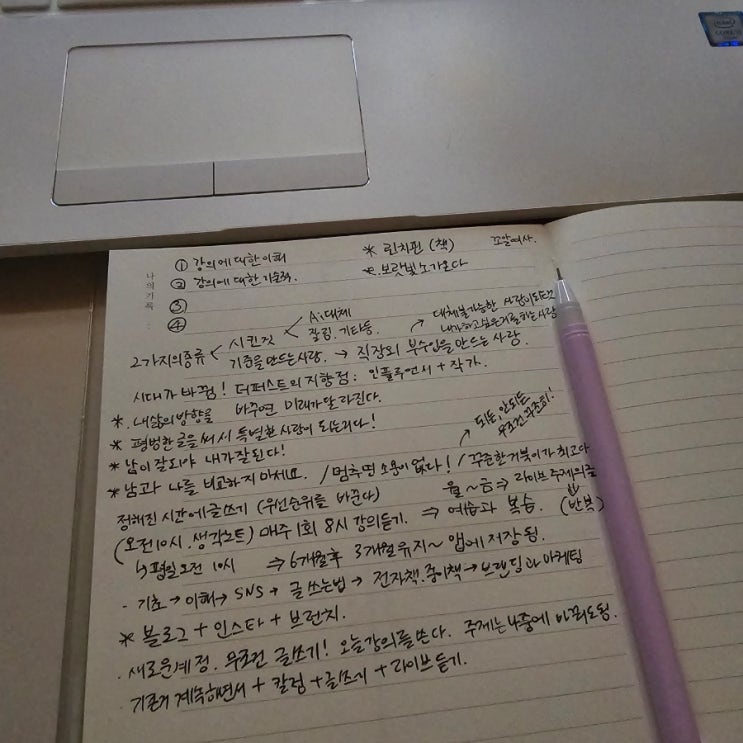 intel
CORE i5
나의 기록 :
① 강의에 대한 이해
② 강의에 대한 기술적.
③
④
* 린치핀 (책)
*e.보랏빛 소가 온다
꼬알여사.
2가지의 종류 < 시킨것 < Ai. 대체
잘림. 기타등.
기준을 만드는 사람. → 직장외 부수입을 만드는 사람.
↗ 대체불가능한 사람이 되던것
내가 하고 싶은 거를 하는 사람
시대가 바뀜! 더퍼스트의 지향점: 인플루언서 + 작가.
*. 내 삶의 방향을 바꾸면 미래가 달라진다.
* 평범한 글을 써서 특별한 사람이 되는거다!
* 남이 잘되야 내가 잘된다!
* 남과 나를 비교하지 마세요. / 멈추면 소용이 없다! / 꾸준한 거북이가 최고다
↗ 되든, 안되든
무조건 꾸준히!
정해진 시간에 글쓰기 (우선순위를 바꾼다) 월~금 ⇒ 라이브 주제의 글
(오전10시. 생각노트) 매주 1회 8시 강의듣기. ⇒ 예습과 복습. (반복)
↳ 평일 오전 10시 ⇒ 6개월후 3개월유지~ 앱에 저장됨.
· 기초 → 이해 → SNS + 글 쓰는법 → 전자책.종이책 → 브랜딩과 마케팅
* 블로그 + 인스타 + 브런치.
· 새로운계정. 무조건 글쓰기! 오늘 강의를 쓴다. 주제는 나중에 바꿔도됨.
기존거 계속하면서 + 칼럼 + 글쓰기 + 라이브 듣기.